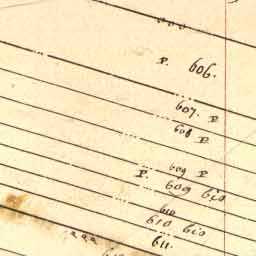 P. 606.
607. P
608 P
609 P
P. 609 610
610
610 610
611.